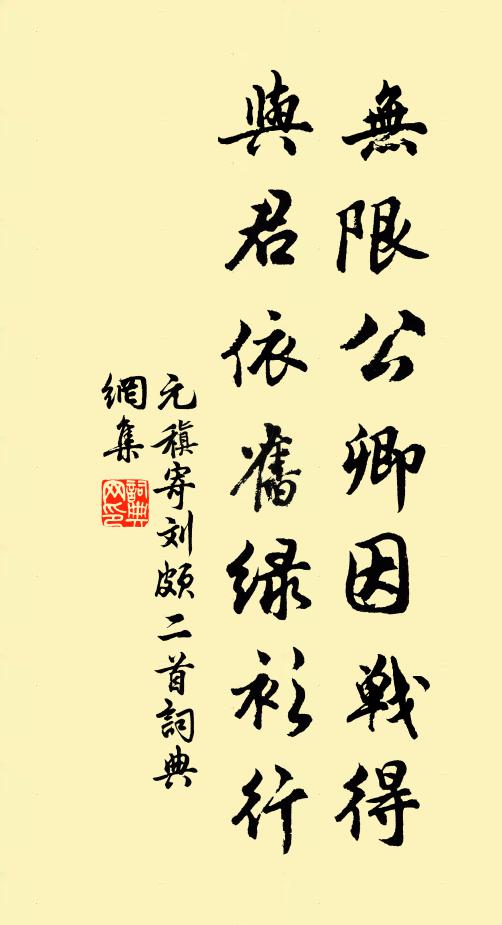 無限公卿因戦得
與君依舊緑衫行
元稹寄刘頗二首詞典
網集
詞典
网印